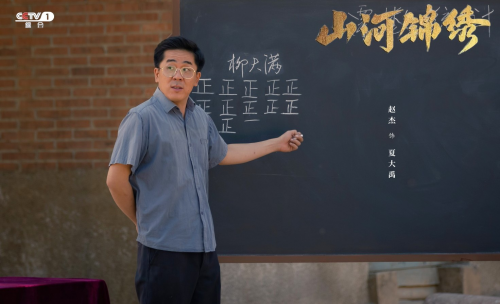 CCTV 1
综合
山河锦绣
柳大满
正 正 正 正 正
正 正 正 正 正
正 一
赵杰 饰 夏大禹